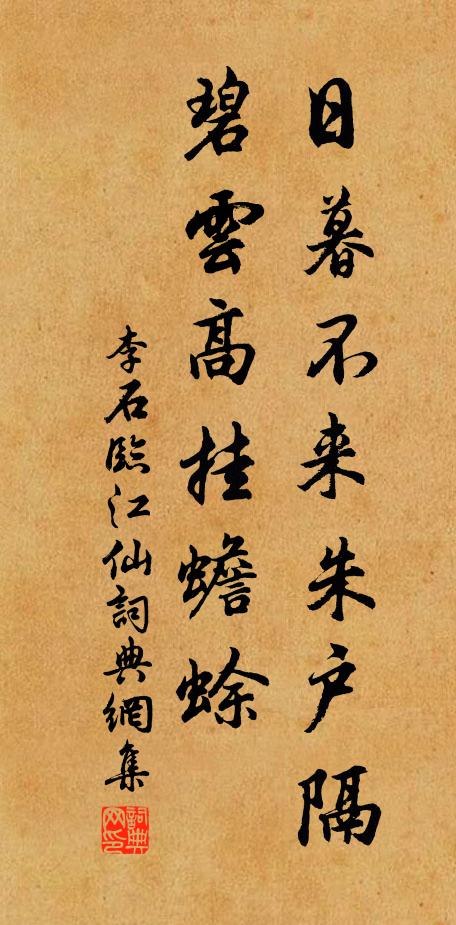 日暮不来朱户隔
碧雲高挂蟾蜍
李石臨江仙詞典網集
詞典网印